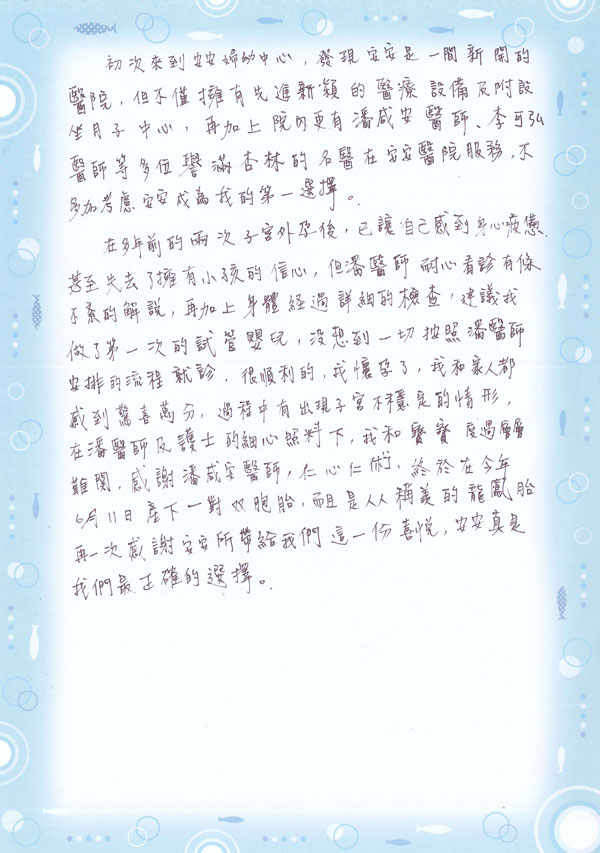 初次來到安安婦幼中心，發現安安是一間新開的
醫院，但不僅擁有先進新穎的醫療設備及附設
坐月子中心，再加上院內更有潘咸安醫師、李可弘
醫師等多位譽滿杏林的名醫在安安醫院服務，不
多加考慮安安成為我的第一選擇。
在多年前的兩次子宮外孕後，已讓自己感到身心疲憊，
甚至失去了擁有小孩的信心，但潘醫師耐心看診有條
不紊的解說，再加上身體經過詳細的檢查，建議我
做了第一次的試管嬰兒，沒想到一切按照潘醫師
安排的流程就診，很順利的，我懷孕了，我和家人都
感到驚喜萬分，過程中有出現子宮不穩定的情形，
在潘醫師及護士的細心照料下，我和寶寶度過層層
難關，感謝潘咸安醫師，仁心仁術，終於在今年
6月11日產下一對双胞胎，而且是人人稱羨的龍鳳胎
再一次感謝安安所帶給我們這一份喜悅，安安真是
我們最正確的選擇。